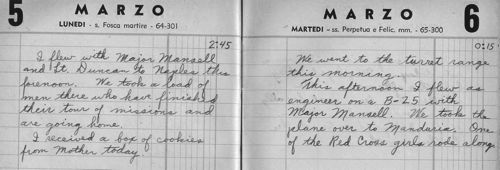 5
MARZO
LUNEDÌ - s. Fosca martire - 64-301
2:45
I flew with Major Mansell
and Lt. Duncan to Naples this
forenoon. We took a load of
men there who have finished
their tour of missions and
are going home.
I received a box of cookies
from Mother today.
MARZO
6
MARTEDÌ - ss. Perpetua e Felic. mm. - 65-300
0:15
We went to the turret range
this morning.
This afternoon I flew as
engineer on a B-25 with
Major Mansell. We took the
plane over to Manduria. One
of the Red Cross girls rode along